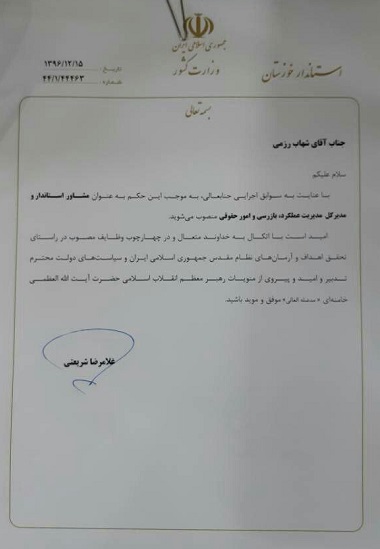 جمهوری اسلامی ایران
وزارت کشور
استاندار خوزستان
تاریخ: ۱۳۹۶/۱۲/۱۵
شماره: ۴۴/۱/۴۴۴۶۳
بسمه تعالی
جناب آقای شهاب رزمی
سلام علیکم
با عنایت به سوابق اجرایی جنابعالی، به موجب این حکم به عنوان مشاور استاندار و
مدیرکل مدیریت عملکرد، بازرسی و امور حقوقی منصوب می‌شوید.
امید است با اتکال به خداوند متعال و در چهارچوب وظایف مصوب در راستای
تحقق اهداف و آرمان‌های نظام مقدس جمهوری اسلامی ایران و سیاست‌های دولت محترم
تدبیر و امید و پیروی از منویات رهبر معظم انقلاب اسلامی حضرت آیت الله العظمی
خامنه‌ای موفق و موید باشید.
غلامرضا شریعتی